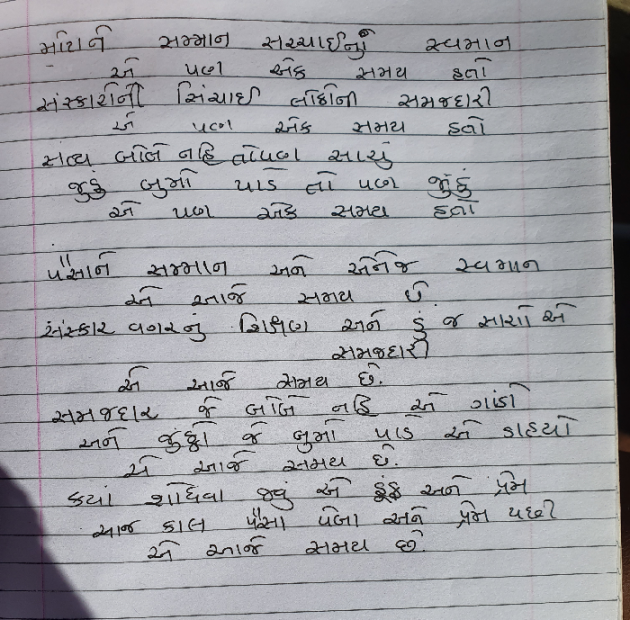 મોટાને સમ્માન સચ્ચાઈનું સ્વમાન
એ પણ એક સમય હતો
સંસ્કારોની સિંચાઈ લોકોની સમજદારી
એ પણ એક સમય હતો
સત્ય બોલે નહિ તોપણ સાચું
જુઠું બુમો પાડે તો પણ જુઠું
એ પણ એક સમય હતો
પૈસાને સમ્માન અને એનેજ સ્વમાન
એ આજે સમય છે.
સંસ્કાર વગરનું શિક્ષણ અને હું જ સાચો એ
સમજદારી
એ આજે સમય છે.
સમજદાર જે બોલે નહિ એ ગાંડો
અને જુઠ્ઠો જે બુમો પાડે એ ડાહ્યો
એ આજે સમય છે.
ક્યાં શોધવા જવું એ હૂંફ અને પ્રેમ
આજ કાલ પૈસા પેલા અને પ્રેમ પછી
એ આજે સમય છે.